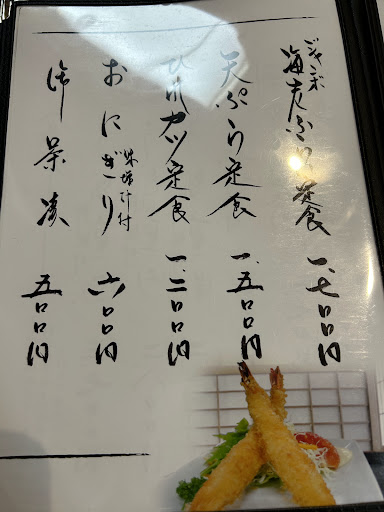 ジャンボ
海老ふらい定食 一、七〇〇円
天ぷら定食 一、五〇〇円
ひれカツ定食 一、二〇〇円
おにぎり 味噌汁付 六〇〇円
御茶漬 五〇〇円